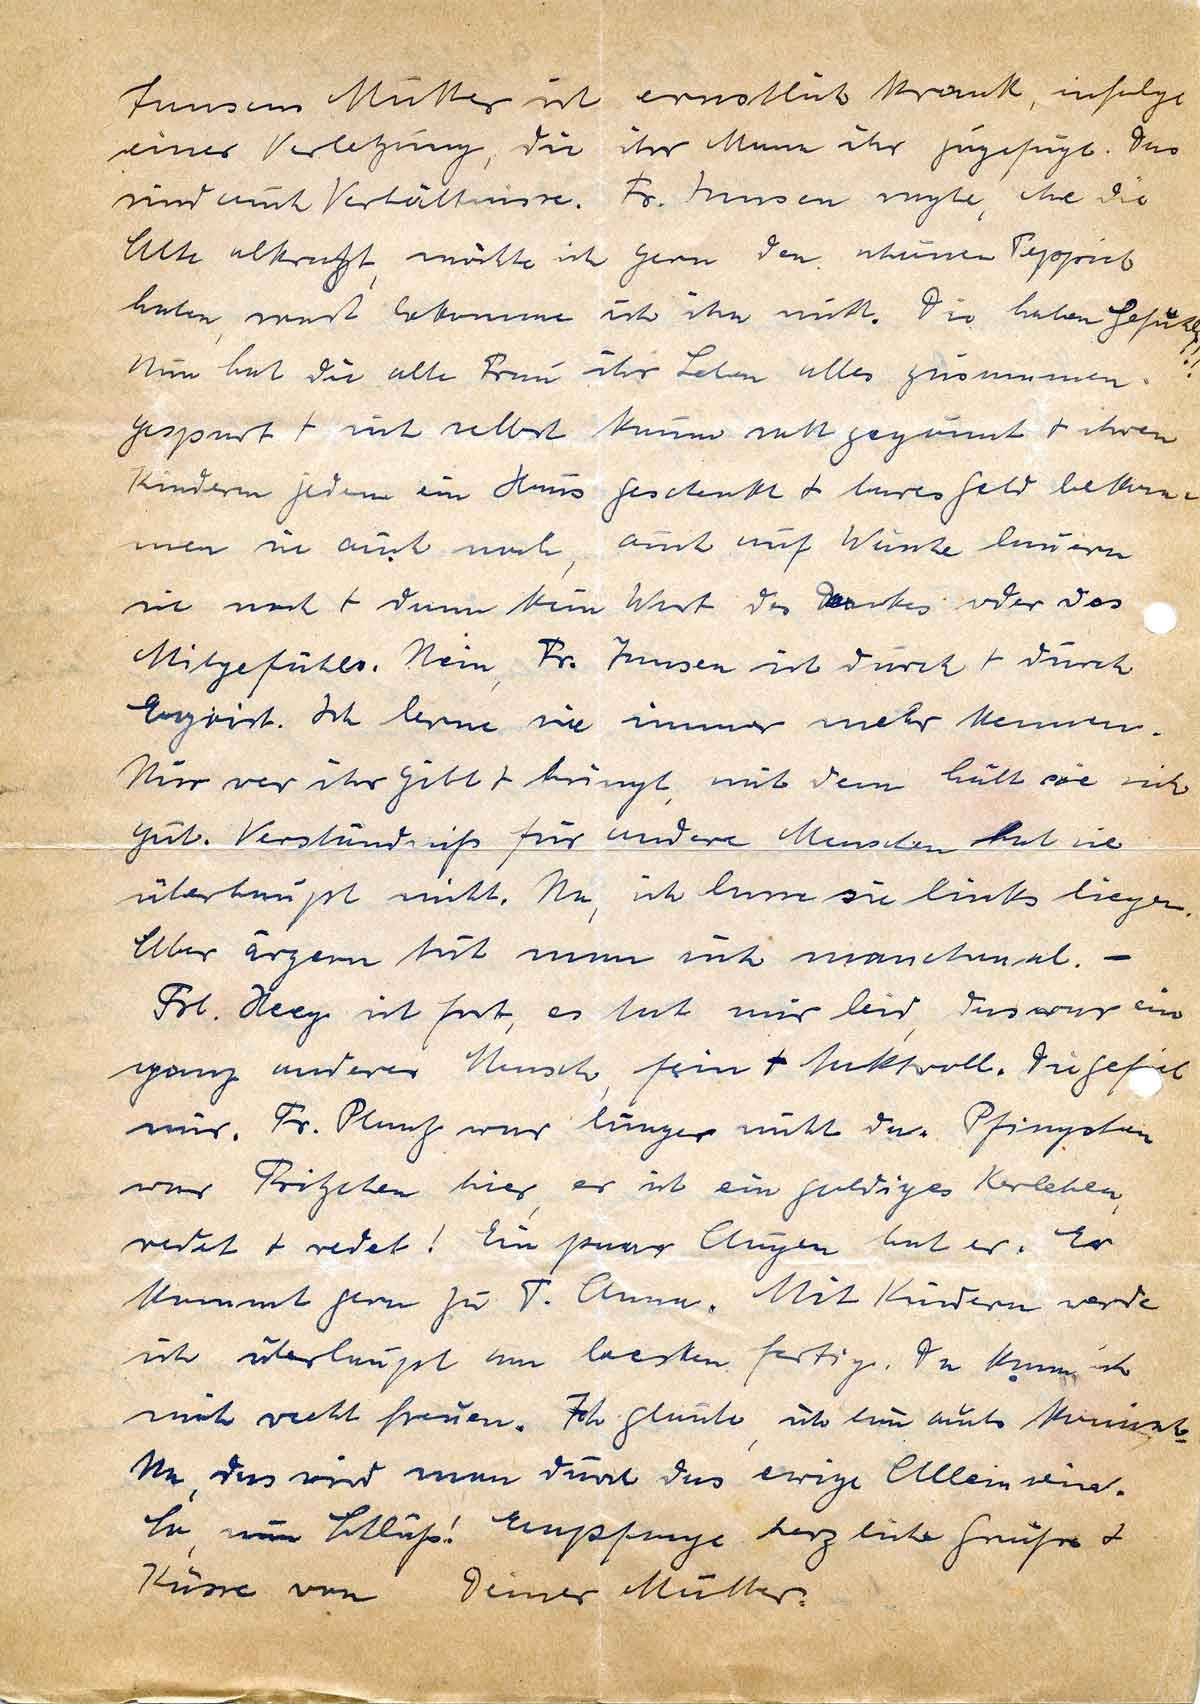 Jansens Mutter ist ernstlich krank, infolge
einer Verletzung, die ihr Mann ihr zugefügt. Das
sind auch Verhältnisse. Fr. Jansen sagte, ehe die
Alte abkratzt, möchte ich gern den schönen Teppich
haben, sonst bekomme ich ihn nicht. Die haben Gefühle!!
Nun hat die alte Frau ihr Leben alles zusammen-
gespart + sich selbst kaum satt gegönnt + ihren
Kindern jedem ein Haus geschenkt + bares Geld bekom-
men sie auch noch, auch auf Wäsche lauern
sie noch + dann kein Wort des Dankes oder des
Mitgefühls. Nein, Fr. Jansen ist durch + durch
Egoist. Ich lerne sie immer mehr kennen.
Nur wer ihr gibt + bringt, mit dem hält sie sich
gut. Verständniß für andere Menschen hat sie
überhaupt nicht. Na, ich lasse sie links liegen.
Aber ärgern tut man sich manchmal. –
Frl. Heeg ist fort, es tut mir leid, das war ein
ganz anderer Mensch, fein + taktvoll. Die gefiel
mir. Fr. Plantz war länger nicht da. Pfingsten
war Fritzchen hier, er ist ein goldiges Kerlchen,
redet + redet! Ein paar Augen hat er. Er
kommt gern zu T. Anna. Mit Kindern werde
ich überhaupt am besten fertig. Da kann ich
mich recht freuen. Ich glaube, ich bin auch komisch.
Na, das wird man durch das ewige Alleinsein.
So, nun Schluß! Empfange herzliche Grüße +
Küsse von Deiner Mutter.